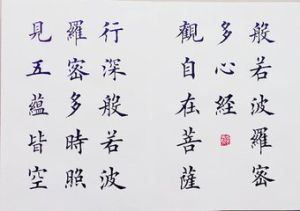 般若波羅密
多心經
觀自在菩薩
行深般若波
羅密多時照
見五蘊皆空